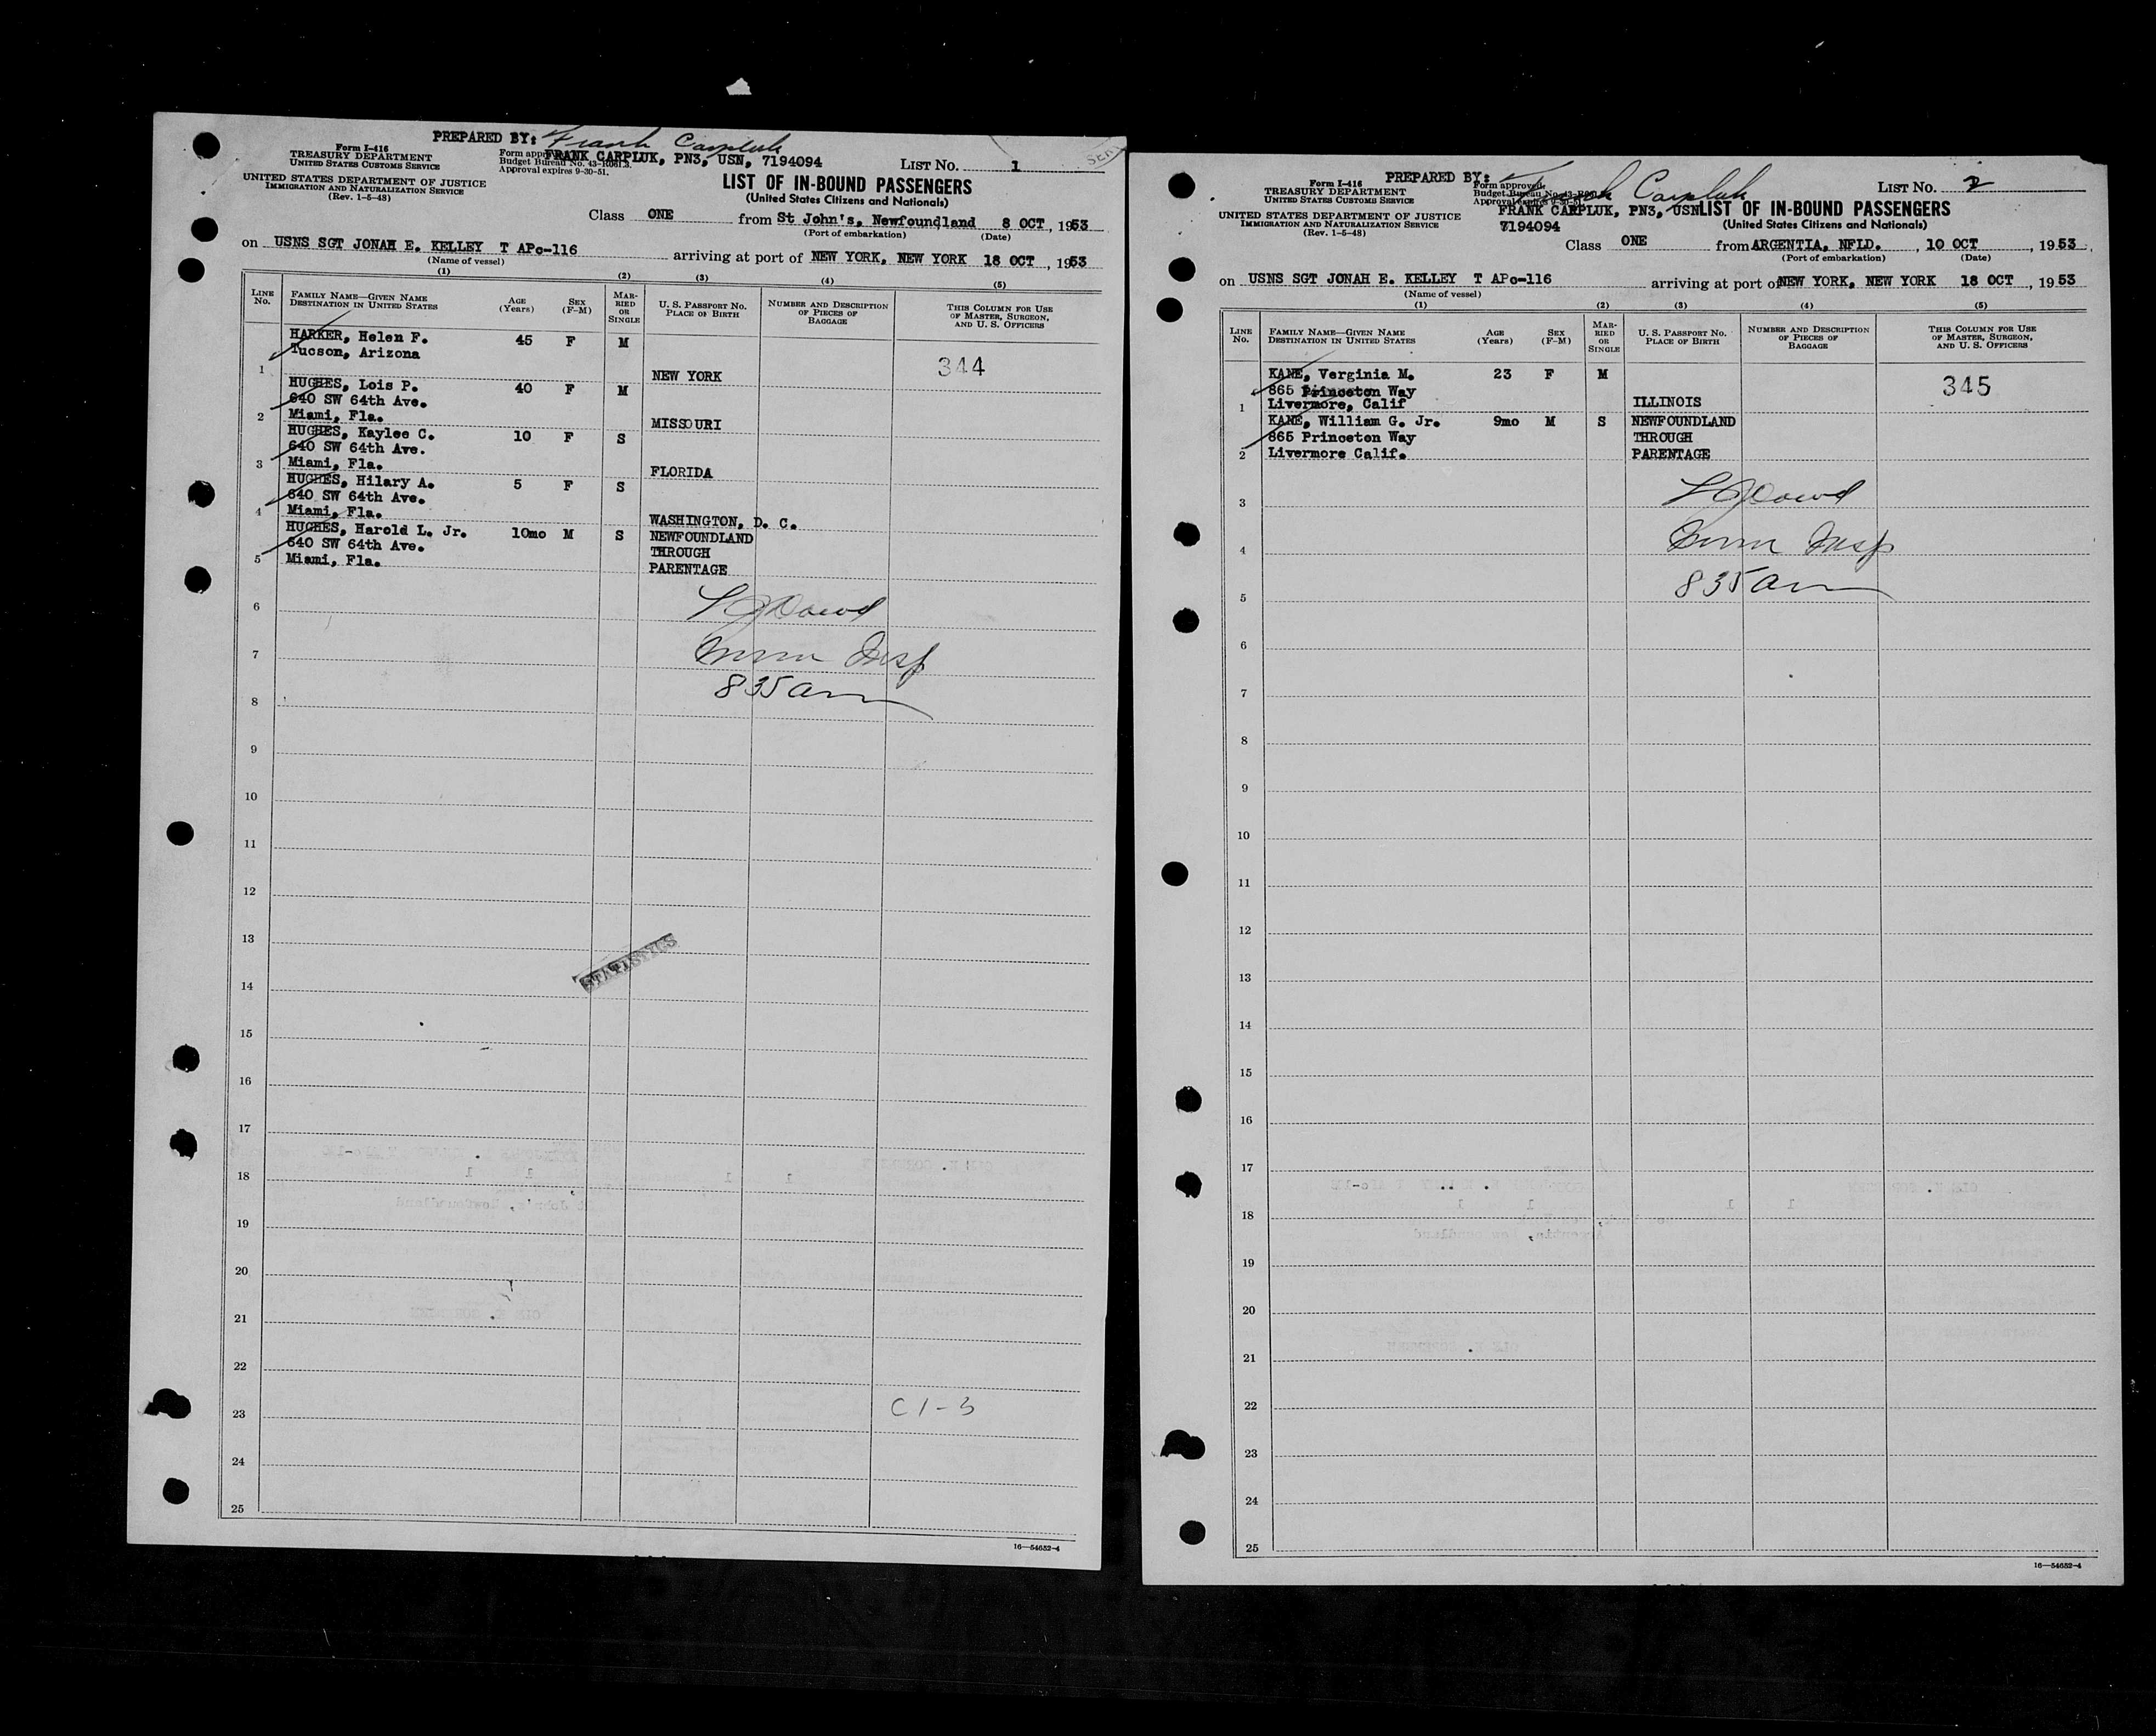 PREPARED BY: Frank Carpluk
Form I-416
TREASURY DEPARTMENT
UNITED STATES CUSTOMS SERVICE
UNITED STATES DEPARTMENT OF JUSTICE
IMMIGRATION AND NATURALIZATION SERVICE
(Rev. 1-5-48)
FRANK CARPLUK, PN3, USN, 7194094
Budget Bureau No. 43-R061.3.
Approval expires 9-30-51.
LIST NO. 1
LIST OF IN-BOUND PASSENGERS
(United States Citizens and Nationals)
Class ONE from St John's, Newfoundland 8 OCT, 1953
(Port of embarkation) (Date)
on USNS SGT JONAH E. KELLEY T APc-116 arriving at port of NEW YORK, NEW YORK 18 OCT, 1953
(Name of vessel)
(1) (2) (3) (4) (5)
LINE No. FAMILY NAME—GIVEN NAME DESTINATION IN UNITED STATES AGE (Years) SEX (F-M) MARRIED OR SINGLE U. S. PASSPORT NO. PLACE OF BIRTH NUMBER AND DESCRIPTION OF PIECES OF BAGGAGE THIS COLUMN FOR USE OF MASTER, SURGEON, AND U. S. OFFICERS
HARKER, Helen F. 45 F M
Tucson, Arizona 344
1 NEW YORK
HUGHES, Lois P. 40 F M
640 SW 64th Ave.
2 Miami, Fla. MISSOURI
HUGHES, Kaylee C. 10 F S
640 SW 64th Ave.
3 Miami, Fla. FLORIDA
HUGHES, Hilary A. 5 F S
640 SW 64th Ave.
4 Miami, Fla. WASHINGTON, D. C.
HUGHES, Harold L. Jr. 10mo M S NEWFOUNDLAND
640 SW 64th Ave. THROUGH
5 Miami, Fla. PARENTAGE
6
7 Imm Insp
8 835 am
9
10
11
12
13
STATISTICS
14
15
16
17
18
19
20
21
22
23 C 1-3
24
25
16—54652-4
PREPARED BY: Frank Carpluk
Form I-416
TREASURY DEPARTMENT
UNITED STATES CUSTOMS SERVICE
UNITED STATES DEPARTMENT OF JUSTICE
IMMIGRATION AND NATURALIZATION SERVICE
(Rev. 1-5-48)
Form approved.
FRANK CARPLUK, PN3, USN
7194094
LIST NO. 2
LIST OF IN-BOUND PASSENGERS
(United States Citizens and Nationals)
Class ONE from ARGENTIA, NFLD., 10 OCT, 1953
(Port of embarkation) (Date)
on USNS SGT JONAH E. KELLEY T APc-116 arriving at port of NEW YORK, NEW YORK 18 OCT, 1953
(Name of vessel)
(1) (2) (3) (4) (5)
LINE No. FAMILY NAME—GIVEN NAME DESTINATION IN UNITED STATES AGE (Years) SEX (F-M) MARRIED OR SINGLE U. S. PASSPORT NO. PLACE OF BIRTH NUMBER AND DESCRIPTION OF PIECES OF BAGGAGE THIS COLUMN FOR USE OF MASTER, SURGEON, AND U. S. OFFICERS
KANE, Verginia M. 23 F M
865 Princeton Way 345
1 Livermore, Calif ILLINOIS
KANE, William G. Jr. 9mo M S NEWFOUNDLAND
865 Princeton Way THROUGH
2 Livermore Calif. PARENTAGE
3
4 Imm Insp
5 835 am
6
7
8
9
10
11
12
13
14
15
16
17
18
19
20
21
22
23
24
25
16—54652-4